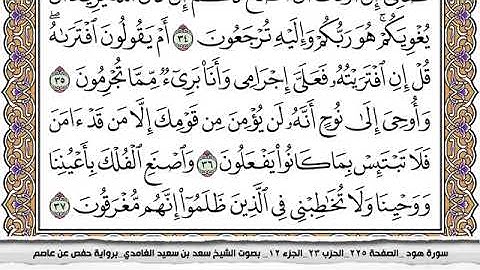 يُغْوِيَكُمْ ۚ هُوَ رَبُّكُمْ وَإِلَيْهِ تُرْجَعُونَ ٣٤ أَمْ يَقُولُونَ ٱفْتَرَىٰهُ ۖ
قُلْ إِنِ ٱفْتَرَيْتُهُۥ فَعَلَىَّ إِجْرَامِى وَأَنَا۠ بَرِىٓءٌ مِّمَّا تُجْرِمُونَ ٣٥
وَأُوحِىَ إِلَىٰ نُوحٍ أَنَّهُۥ لَن يُؤْمِنَ مِن قَوْمِكَ إِلَّا مَن قَدْ ءَامَنَ
فَلَا تَبْتَئِسْ بِمَا كَانُوا۟ يَفْعَلُونَ ٣٦ وَٱصْنَعِ ٱلْفُلْكَ بِأَعْيُنِنَا
وَوَحْيِنَا وَلَا تُخَٰطِبْنِى فِى ٱلَّذِينَ ظَلَمُوٓا۟ إِنَّهُم مُّغْرَقُونَ ٣٧
سورة هود _ الصفحة ٢٢٥_ الحزب ٢٣_ الجزء ١٢_ بصوت الشيخ سعد بن سعيد الغامدي_برواية حفص عن عاصم